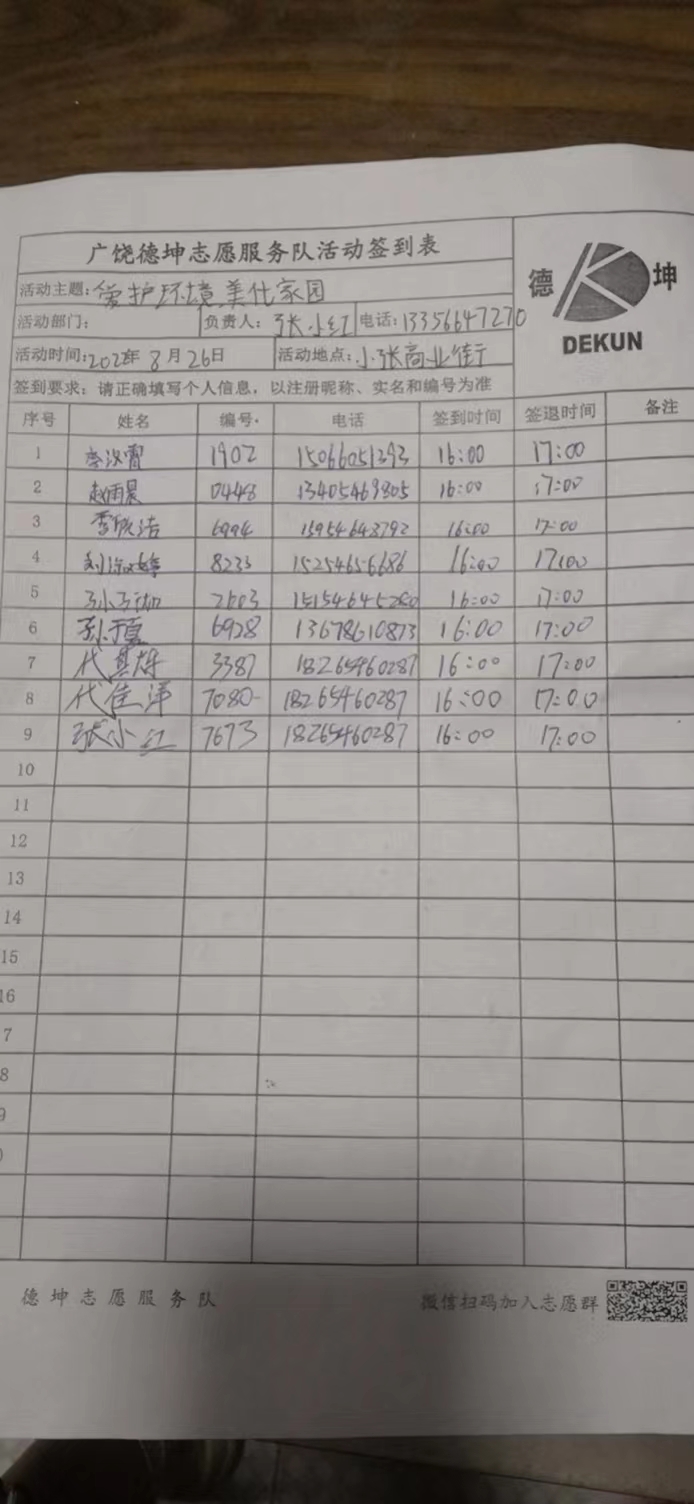 广饶德坤志愿服务队活动签到表
德 坤
DEKUN
活动主题:爱护环境美化家园
活动部门: 负责人:张小红 电话:13356647270
活动时间:202 年8月26日 活动地点:小张商业街
签到要求:请正确填写个人信息,以注册昵称、实名和编号为准
序号 姓名 编号. 电话 签到时间 签退时间 备注
1 1902 15066051393 16:00 17:00
2 赵雨晨 0448 13405469805 16:00 17:00
3 6994 15954643792 16:00 17:00
4 8233 15254656686 16:00 17:00
5 2603 16:00 17:00
6 孙夏 6928 13678610873 16:00 17:00
7 代 3387 18265460287 16:00 17:00
8 代佳洋 7080 18265460287 16:00 17:00
9 张小红 7673 18265460287 16:00 17:00
10
11
12
13
14
15
16
7
8
9
德坤志愿服务队 微信扫码加入志愿群